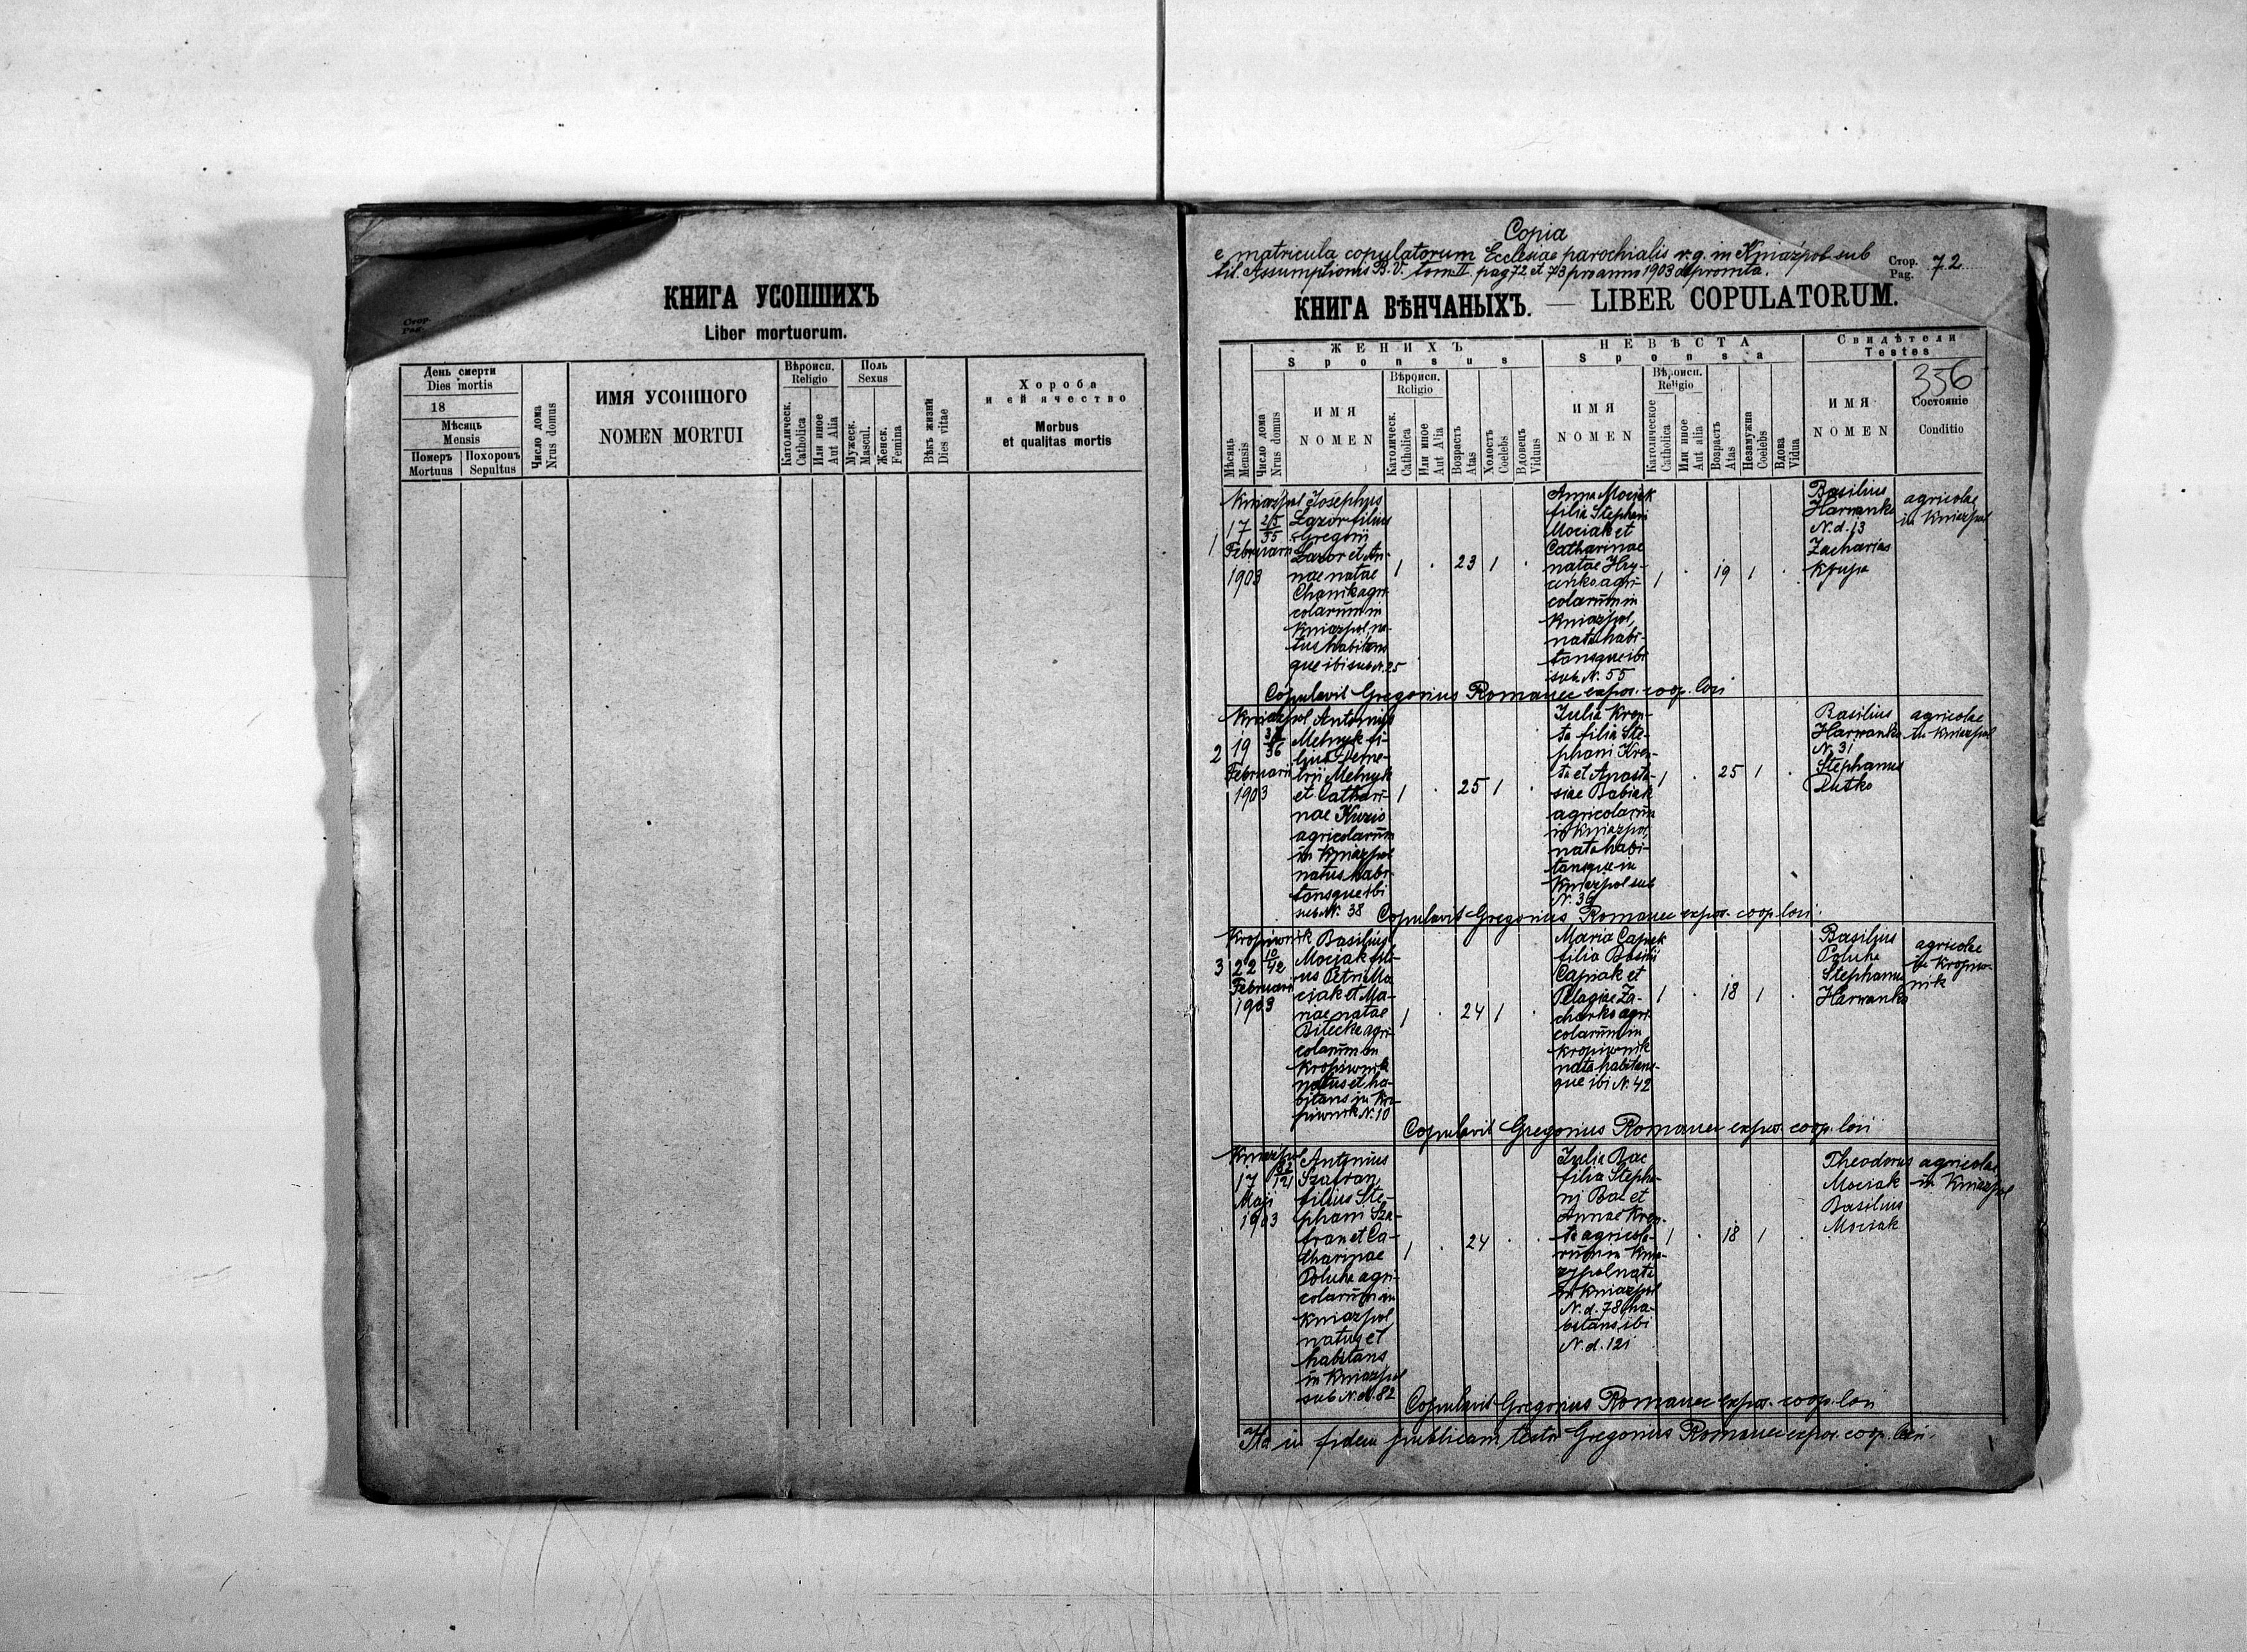 КНИГА УСОПШИХЪ
Liber mortuorum.
Стор.
Pag.
День смерти
Dies mortis
18
Мѣсяць
Mensis
Померъ
Mortuus
Похороиъ
Sepultus
Число дома
Nrus domus
ИМЯ УСОПШОГО
NOMEN MORTUI
Вѣроисп.
Religio
Католическ.
Catholica
Или иное
Aut Alia
Поль
Sexus
Мужеск.
Mascul.
Женск.
Femina
Вѣкъ жизни
Dies vitae
Хороба
и ей ячество
Morbus
et qualitas mortis
Copia
e matricula copulatorum Ecclesiae parochialis r. g. in Kniażpol sub
tit. Assumptionis B. V. tom. II. pag 72 et 73 pro anno 1903 deprompta.
Стор.
Pag. 72
КНИГА ВѢНЧАНЫХЪ. — LIBER COPULATORUM.
356
Мѣсяць
Mensis
Число дома
Nrus domus
ЖЕНИХЪ
Sponsus
ИМЯ
NOMEN
Вѣроисп.
Religio
Католическ.
Catholica
Или иное
Aut Alia
Возрастъ
Atas
Холостъ
Coelebs
Вдовець
Viduus
НЕВѢСТА
Sponsa
ИМЯ
NOMEN
Вѣроисп.
Religio
Католическое
Catholica
Или иное
Aut alia
Возрастъ
Atas
Незамужна
Coelebs
Вдова
Vidua
Свидѣтели
Testes
ИМЯ
NOMEN
Состояніе
Conditio
1
Kniażpol
17
Februarii
1903
25
55
Josephus
Lazor filius
Gregorii
Lazor et An-
nae natae
Chanik agri-
colarum in
Kniażpol, na-
tus habitans
que ibi sub N. 25
1 . 23 1 .
Anna Mociak
filia Stephani
Mociak et
Catharinae
natae Hry-
cenko agri-
colarum in
Kniażpol,
nata habi-
tansque ibi
sub N. 55
1 . 19 1 .
Basilius
Harwanko
N. d. 13
Zacharias
Krupa
agricolae
in Kniażpol
Copulavit Gregorius Romanec expos. coop. loci
2
Kniażpol
19
Februarii
1903
38
36
Antonius
Melnyk fi-
lius Deme-
trii Melnyk
et Cathari-
nae Kuzio
agricolarum
in Kniażpol
natus habi-
tansque ibi
sub N. 38
1 . 25 1 .
Julia Krop-
ta filia Ste-
phani Krop-
ta et Anasta-
siae Babiak
agricolarum
in Kniażpol,
nata habi-
tansque in
Kniażpol sub
N. 36
1 . 25 1 .
Basilius
Harwanko
N. 31
Stephanus
Dutko
agricolae
in Kniażpol
Copulavit Gregorius Romanec expos. coop. loci.
3
Kropiwnik
22
Februarii
1903
10
42
Basilius
Mociak fili-
us Petri Mo-
ciak et Ma-
riae natae
Bilecka agri-
colarum in
Kropiwnik
natus et ha-
bitans in Kro-
piwnik N. 10
1 . 24 1 .
Maria Capiak
filia Basilii
Capiak et
Pelagiae Za-
charko agri-
colarum in
Kropiwnik
nata habitans-
que ibi N. 42
1 . 18 1 .
Basilius
Poluha
Stephanus
Harwanko
agricolae
in Kropiw-
nik
Copulavit Gregorius Romanec expos. coop. loci
Kniażpol
17
Maji
1903
82
121
Antonius
Szafran
filius Ste-
phani Sza-
fran et Ca-
tharinae
Poluha agri-
colarum in
Kniażpol,
natus et
habitans
in Kniażpol
sub N. d. 82
1 . 24 . .
Julia Bac
filia Stepha-
ni Bac et
Annae Krop-
ta agricola-
rum in Knia-
żpol nata
in Kniażpol
N. d. 78 ha-
bitans ibi
N. d. 121
1 . 18 1 .
Theodorus
Mociak
Basilius
Mociak
agricolae
in Kniażpol
Copulavit Gregorius Romanec expos. coop. loci
Ita in fidem publicam testor Gregorius Romanec expos. coop. loci.